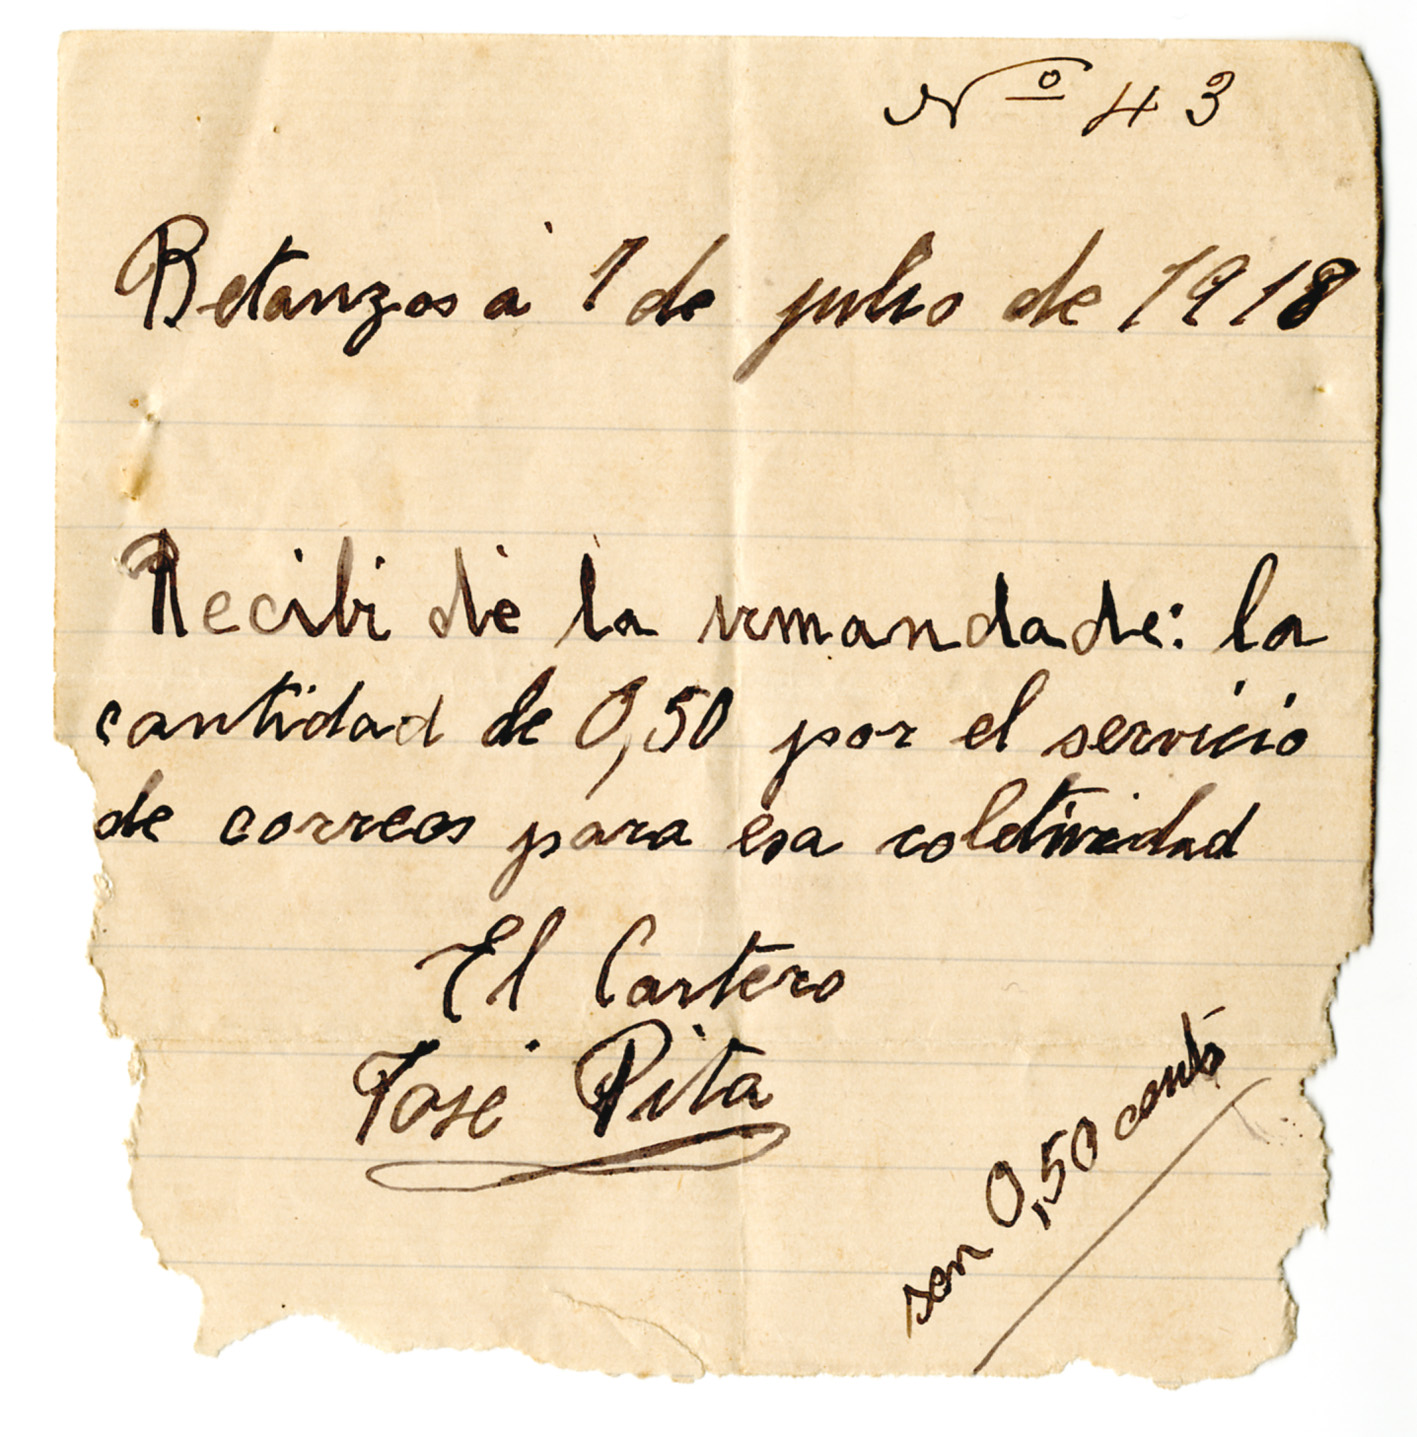 Nº 43
Betanzos á 1 de julio de 1918
Recibi de la irmandade: la
cantidad de 0,50 por el servicio
de correos para esa coletividad
El Cartero
José Pita
son 0,50 cents